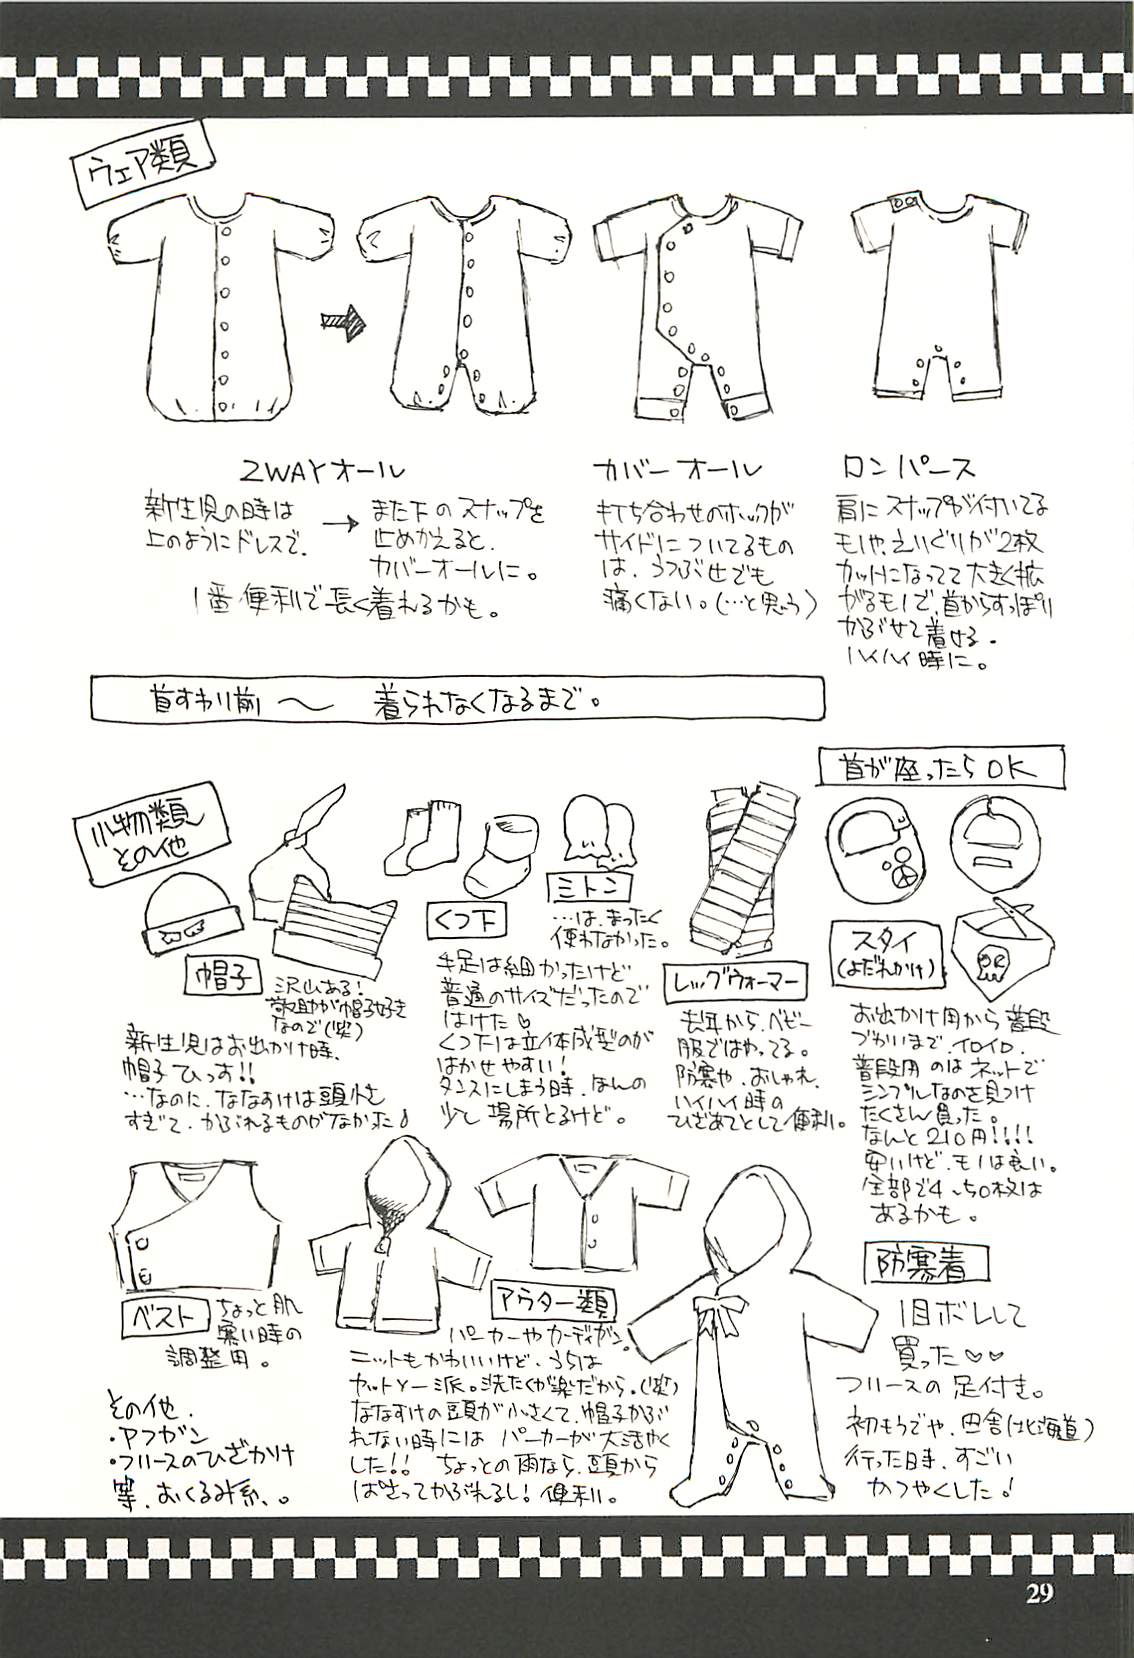 ウェア類
2WAYオール
新生児の時は
上のようにドレスで、
→
また下のスナップを
止めかえると、
カバーオールに。
1番便利で長く着れるかも。
カバーオール
打ち合わせのホックが
サイドについてるもの
は、うつぶせでも
痛くない。(…と思う)
ロンパース
肩にスナップが付いてる
モノや、えいぐりが2枚
カットになってて大きく拡
がるモノで、首からすっぽり
かぶせて着せる。
ハイハイ時に。
首すわり前 〜 着られなくなるまで。
小物類
その他
帽子
沢山ある!
が帽子好き
なので(笑)
新生児はお出かけ時、
帽子ひっす!!
…なのに、ななすけは頭小さ
すぎて、かぶれるものがなかった♪
くつ下
手足は細かったけど
普通のサイズだったので
はけた♡
くつ下は立体成型のが
はかせやすい!
タンスにしまう時、ほんの
少し場所とるけど。
ミトン
…は、まったく
使わなかった。
レッグウォーマー
去年から、ベビー
服ではやってる。
防寒や、おしゃれ、
ハイハイ時の
ひざあてとして便利。
首が座ったらOK
スタイ
(よだれかけ)
お出かけ用から普段
づかいまで、イロイロ。
普段用のはネットで
シンプルなのを見つけ
たくさん買った。
なんと210円!!!!
安いけど、モノは良い。
全部で4、50枚は
あるかも。
ベスト
ちょっと肌
寒い時の
調整用。
アウター類
パーカーやカーディガン。
ニットもかわいいけど、うちは
カットソー派。洗たくが楽だから。(笑)
ななすけの頭が小さくて、帽子かぶ
れない時にはパーカーが大活やく
した!! ちょっとの雨なら、頭から
ばさってかぶれるし!便利。
防寒着
1目ボレして
買った♡♡
フリースの足付き。
初もうでや、田舎(北海道)
行った時、すごい
かつやくした!
その他、
・アフガン
・フリースのひざかけ
等、おくるみ系。。
29